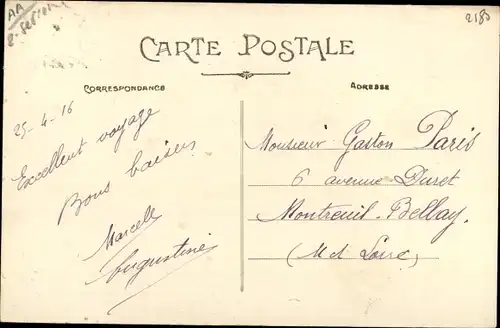 AA
2180
CARTE POSTALE
CORRESPONDANCE
ADRESSE
25-4-16
Excellent voyage
Bons baisers
Marcelle
Augustine
Monsieur Gaston Paris
6 avenue Duret
Montreuil-Bellay
(M et Loire)